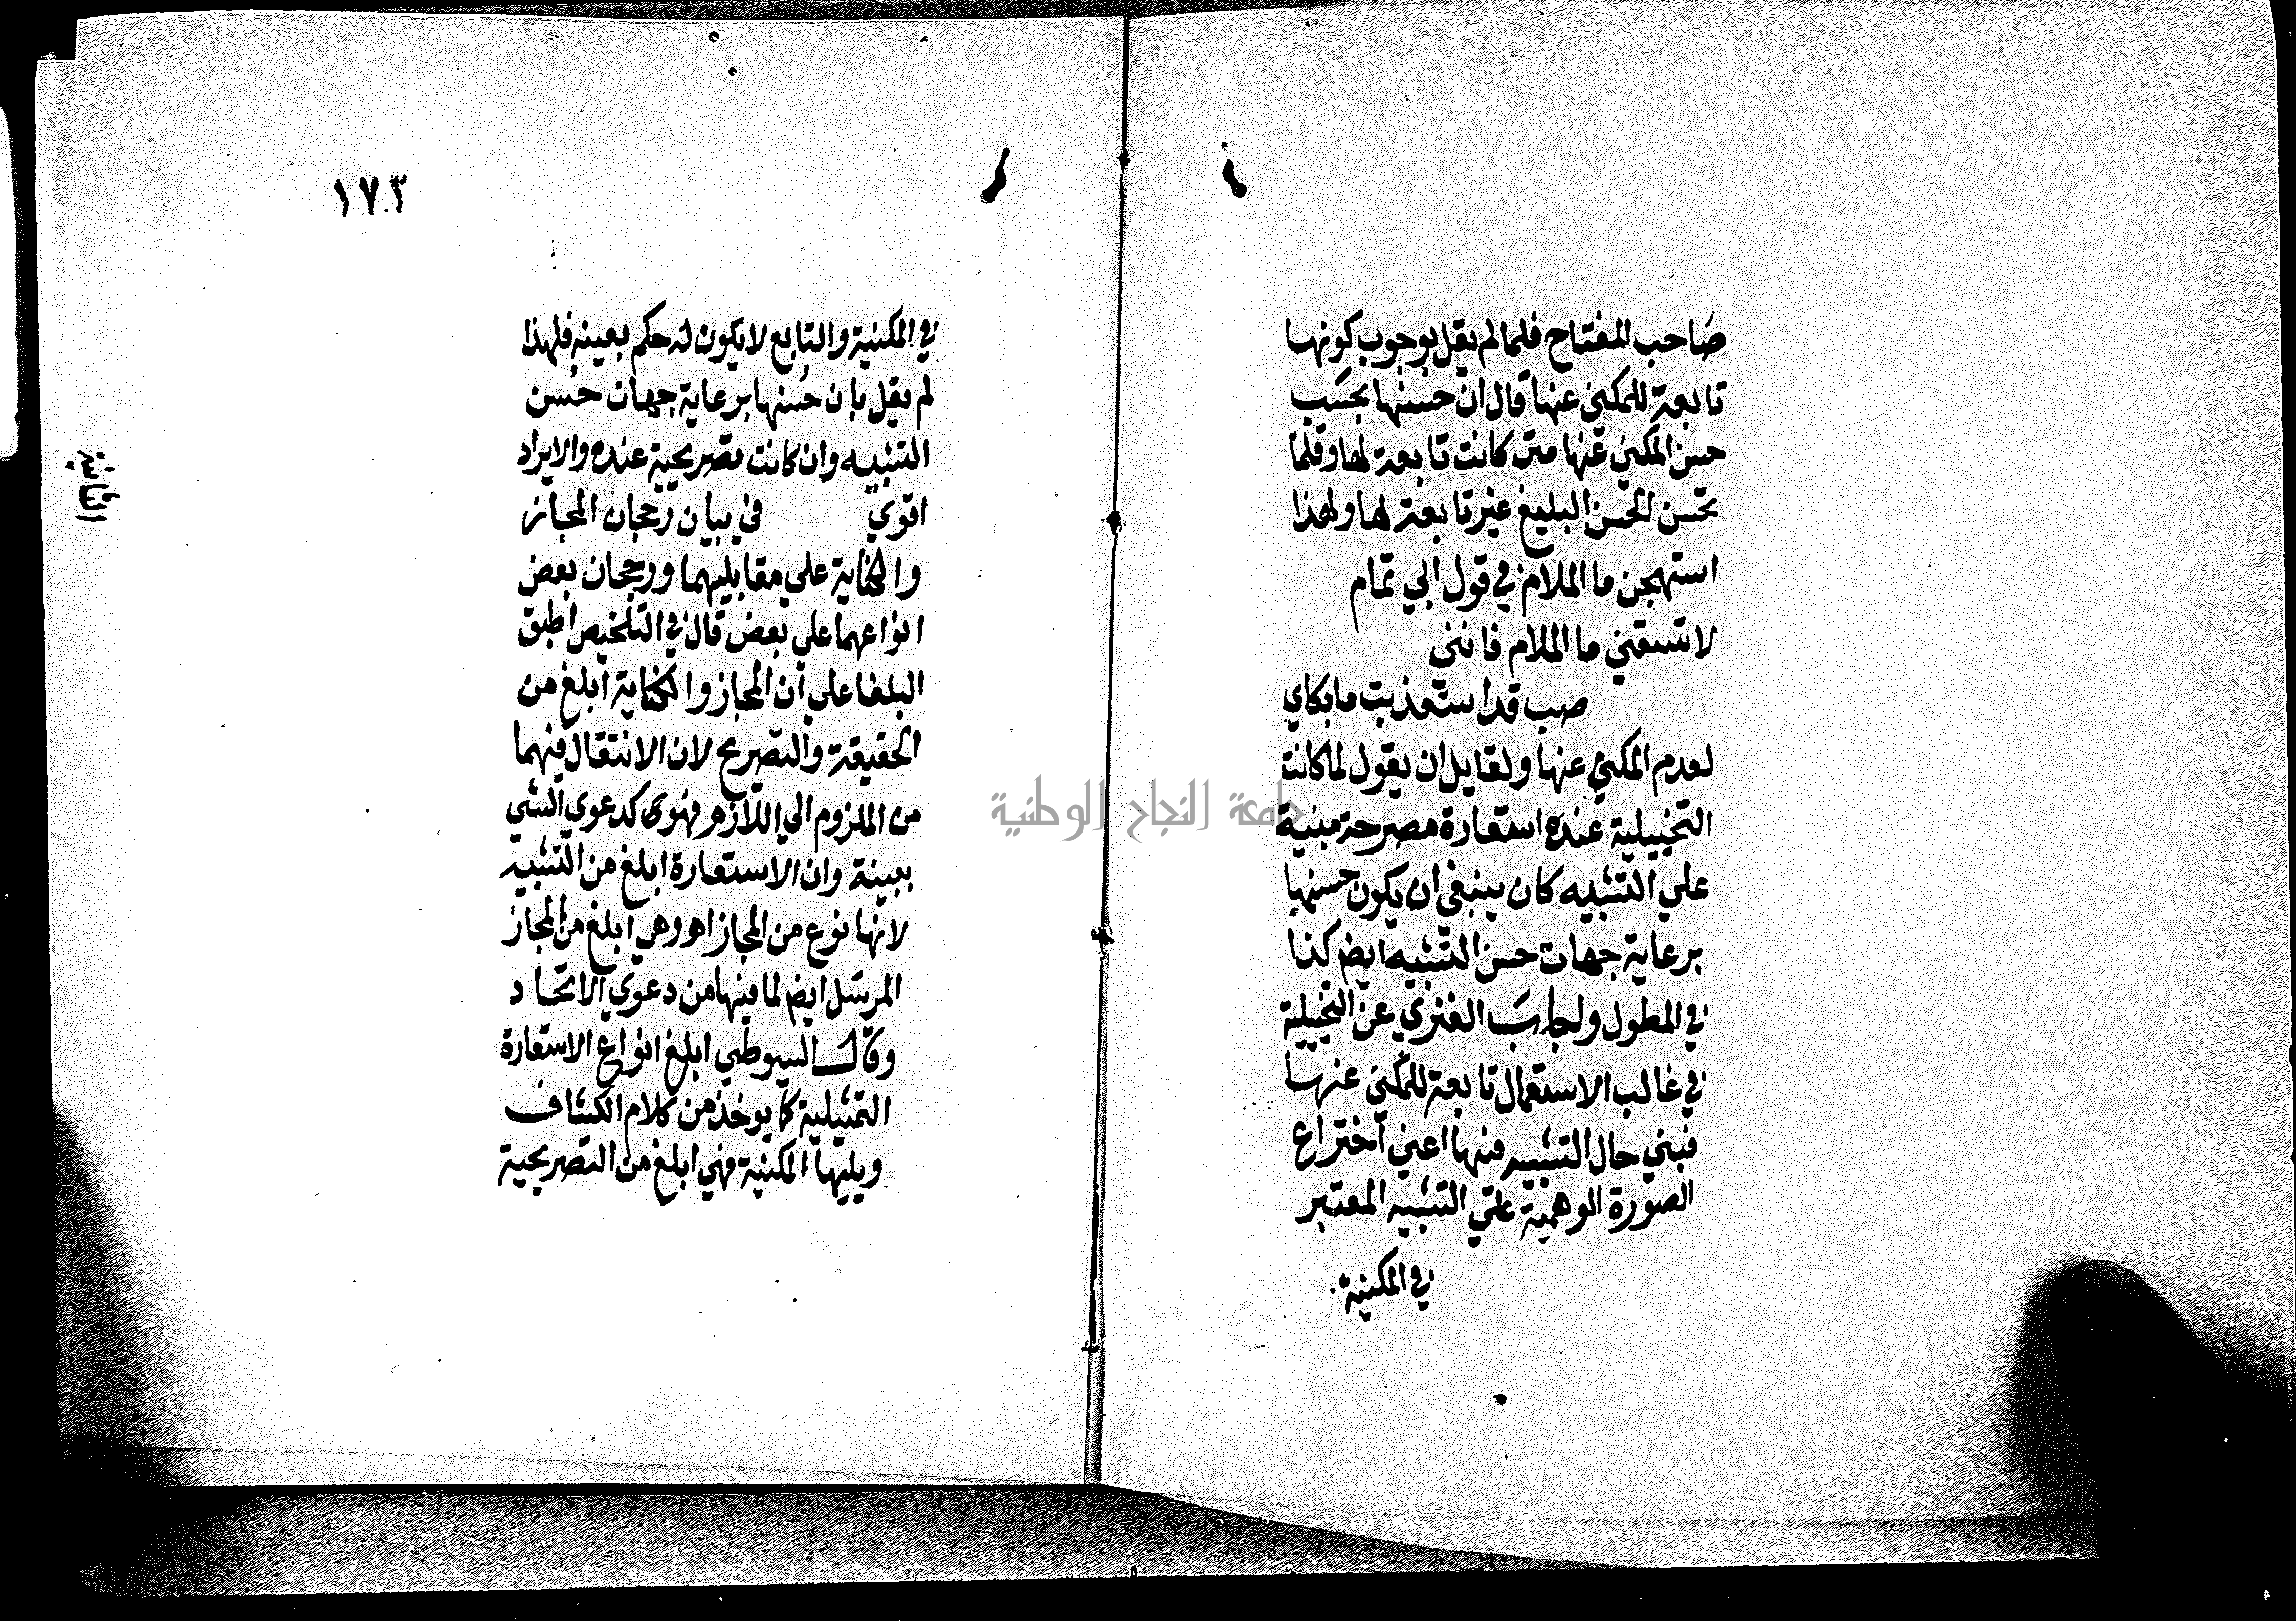 صاحب المفتاح فلما لم يقل بوجوب كونها
تابعة للمكنى عنها قال ان حسنها بحسب
حسن المكني عنها متى كانت تابعة لها وقلما
تحسن الحسن البليغ غير تابعة لها ولهذا
استهجن ما الملام في قول ابي تمام
لا تسقني ما الملام فانني
صب قد استعذبت ما بكاي
لعدم المكني عنها ولقايل ان يقول لما كانت
التخييلية عنده استعارة مصرحة مبنية
علي التشبيه كان ينبغي ان يكون حسنها
برعاية جهات حسن التشبيه ايضم كذا
في المطول واجاب الفنري عن التخييلية
في غالب الاستعمال تابعة للمكنى عنها
فبني حال التشبيه فيها اعني اختراع
الصورة الوهمية علي التشبيه المعتبر
في المكنية
١٧٣
في المكنية والتابع لا يكون له حكم بعينه فلهذا
لم يقل بان حسنها برعاية جهات حسن
التشبيه وان كانت تصريحية عنده والايراد
اقوي في بيان رجحان المجاز
والكناية علي مقابليهما ورجحان بعض
انواعهما علي بعض قال في التلخيص اطبق
البلغا علي ان المجاز والكناية ابلغ من
الحقيقة والتصريح لان الانتقال فيهما
من الملزوم الي اللازم فهو كدعوي الشي
ببينة وان الاستعارة ابلغ من التشبيه
لانها نوع من المجاز اه وهي ابلغ من المجاز
المرسل ايضم لما فيها من دعوي الاتحاد
وقال السيوطي ابلغ انواع الاستعارة
التمثيلية كما يوخذ من كلام الكشاف
ويليها المكنية فهي ابلغ من التصريحية
جامعة النجاح الوطنية